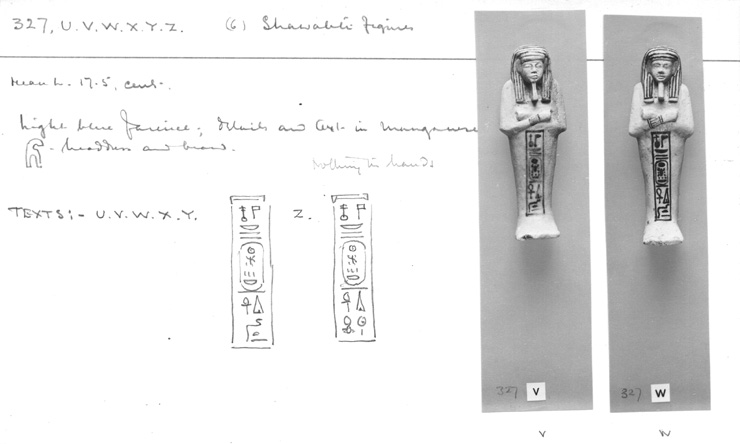 327, U.V.W.X.Y.Z. (6) Shawabti figures
Mean h. 17.5, cent.
Light blue faience; details and text in manganese
- headdress and beard.
Nothing in hands
TEXTS:- U.V.W.X.Y. Z.
327 V
327 W
V W